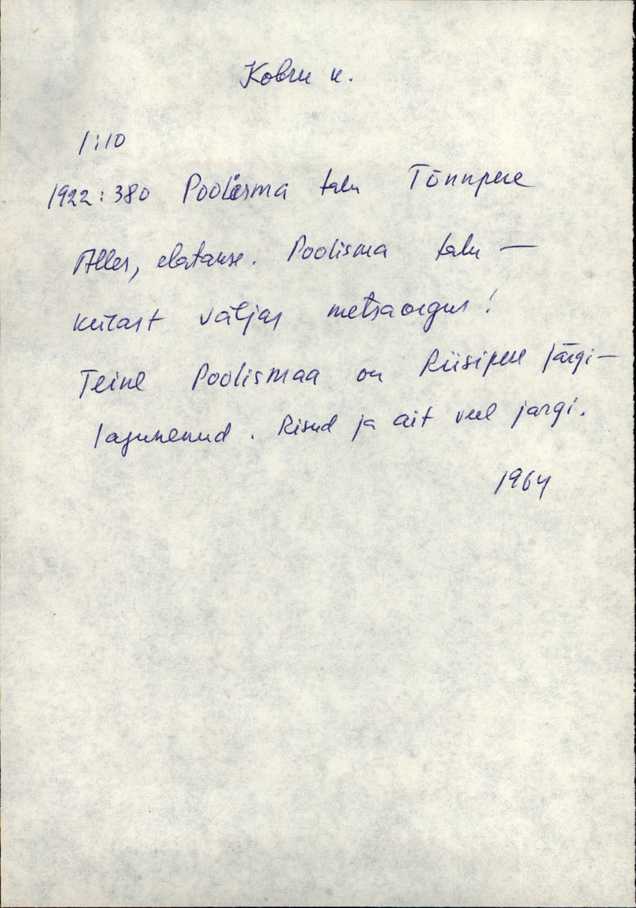 Kobru k.
1:10
1922:380 Poolisma talu Tõnnpere
Alles, elatakse. Poolisma talu —
külast väljas metsaorgus!
Teine Poolismaa on Riisipere järgi —
lagunenud. Risud ja ait veel järgi.
1964